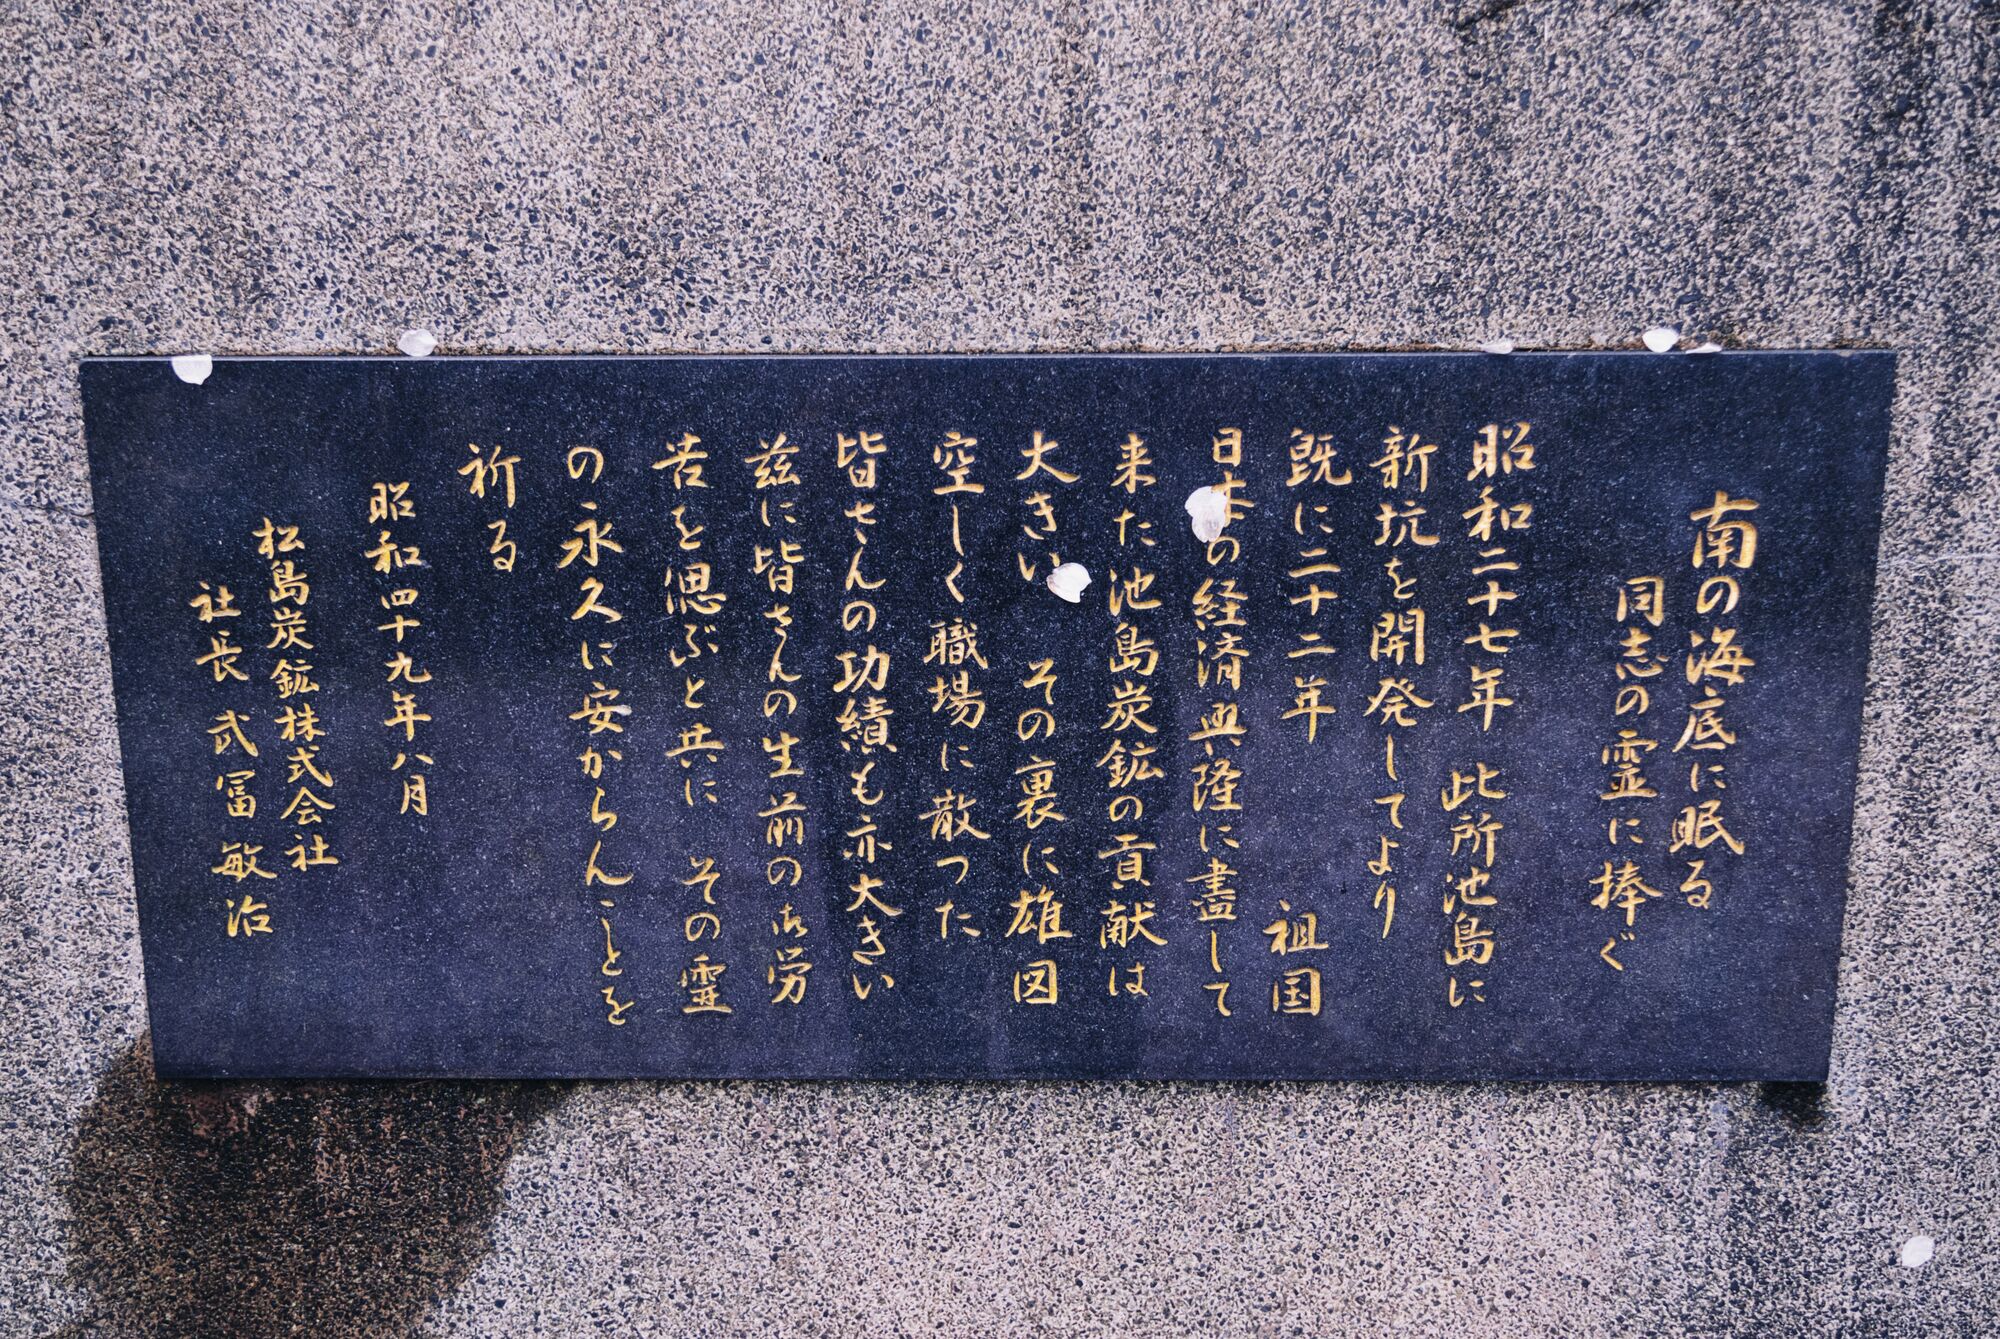 南の海底に眠る
同志の霊に捧ぐ
昭和二十七年 此所池島に
新坑を開発してより
既に二十二年 祖国
日本の経済興隆に盡して
来た池島炭鉱の貢献は
大きい その裏に雄図
空しく職場に散つた
皆さんの功績も亦大きい
茲に皆さんの生前の御労
苦を偲ぶと共に その霊
の永久に安からんことを
祈る
昭和四十九年八月
松島炭鉱株式会社
社長 武冨敏治